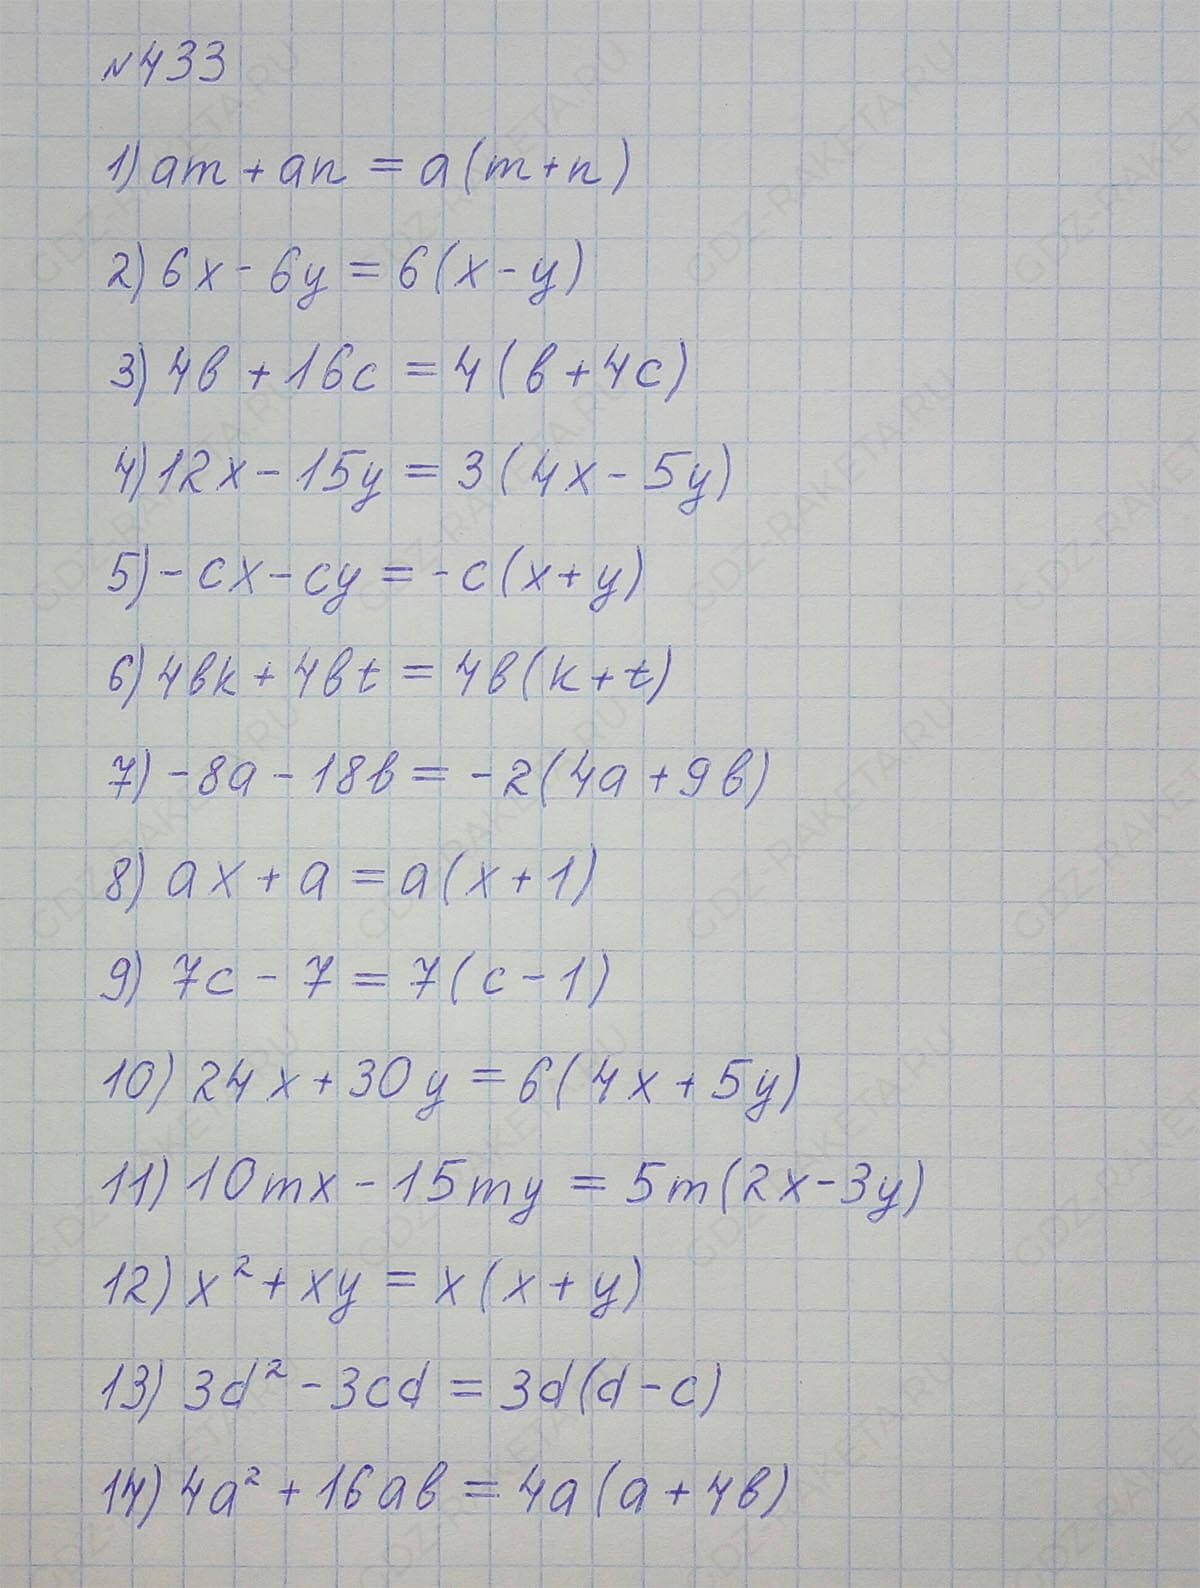 №433
1) am + an = a(m+n)
2) 6x - 6y = 6(x - y)
3) 4в + 16c = 4(в + 4c)
4) 12x - 15y = 3(4x - 5y)
5) -cx - cy = -c(x+y)
6) 4вk + 4вt = 4в(k+t)
7) -8a - 18в = -2(4a + 9в)
8) ax + a = a(x+1)
9) 7c - 7 = 7(c - 1)
10) 24x + 30y = 6(4x + 5y)
11) 10mx - 15my = 5m(2x - 3y)
12) x² + xy = x(x + y)
13) 3d² - 3cd = 3d(d - c)
14) 4a² + 16aв = 4a(a + 4в)
GDZ-RAKETA.RU